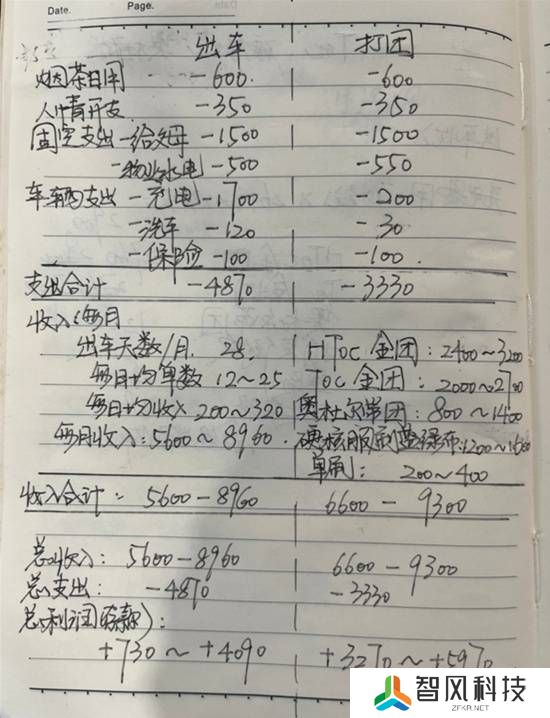 Date. Page.
出车 打团
烟茶日用 -600. -600
人情开支 -350 -350
固定支出-给父母 -1500 -1500
-物业水电 -500 -550
车辆支出-充电 -1700 -200
-洗车 -120 -30
-保险 -100 -100.
支出合计 -4870 -3330
收入(每月
出车天数/月. 28. HToc金团: 2400~3200
每日均单数 12~25 Toc金团: 2000~2700
每日均收入 200~320 奥杜尔单团: 800~1400
每月收入: 5600~8960. 硬核服制 :1200~1600
单刷: 200~400
收入合计: 5600-8960 6600-9300
总收入: 5600-8960 6600-9300
总支出: -4870 -3330
总利润(存款):
+730~+4090 +3270~+5970
智风科技
ZFKR.NET